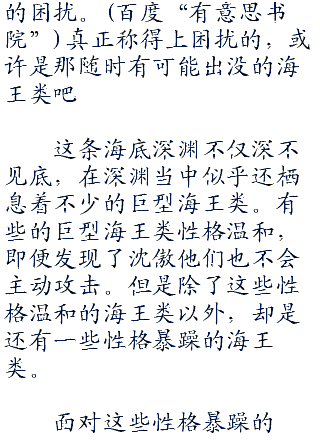 的困扰。(百度“有意思书
院”)真正称得上困扰的，或
许是那随时有可能出没的海
王类吧
这条海底深渊不仅深不
见底，在深渊当中似乎还栖
息着不少的巨型海王类。有
些的巨型海王类性格温和，
即便发现了沈傲他们也不会
主动攻击。但是除了这些性
格温和的海王类以外，却是
还有一些性格暴躁的海王
类。
面对这些性格暴躁的